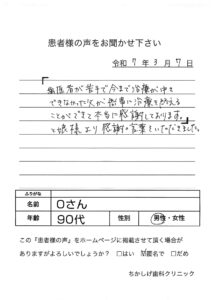 患者様の声をお聞かせ下さい
令和 7 年 3 月 7 日
「歯医者が苦手で今まで治療が中々
できなかった父が無事に治療を終える
ことができて本当に感謝しております」
と娘様より感謝の言葉をいただきました。
ふりがな
名前 Oさん
年齢 90代 性別 男性・女性
この『患者様の声』をホームページに掲載させて頂く場合が
ありますがよろしいでしょうか? □はい ☒匿名で □だめ
ちかしげ歯科クリニック